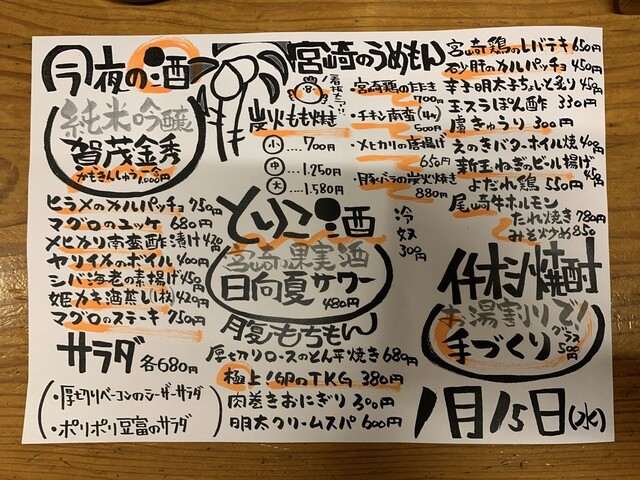 今夜の酒
純米吟醸
賀茂金秀
かもきんしゅう 一合
1,000円
ヒラメのカルパッチョ 750円
マグロのユッケ 680円
メヒカリ南蛮酢漬け 420円
ヤリイカのボイル 400円
シバ海老の素揚げ 450円
姫カキ酒蒸し(1枚) 420円
マグロのステーキ 750円
サラダ 各680円
・厚切りベーコンのシーザーサラダ
・ポリポリ豆富のサラダ
宮崎のうめもん
炭火もも焼き
小…700円
中…1,250円
大…1,580円
看板だっ!!
・宮崎鶏のたたき
700円
・チキン南蛮(4ヶ)
500円
・メヒカリの唐揚げ
650円
・豚バラの炭火焼き
880円
とりこ酒
宮崎の果実酒
日向夏サワー
480円
冷奴
300円
腹もちもん
厚切りロースのとん平焼き 680円
極上!GPのTKG 380円
肉巻きおにぎり 300円
明太クリームスパ 600円
宮崎鶏のレバテキ 650円
砂肝のカルパッチョ 450円
辛子明太子ちょいと炙り 450円
玉スラぽん酢 330円
虜きゅうり 300円
えのきバターホイル焼 400円
新玉ねぎのビール揚げ 450円
よだれ鶏 550円
尾崎牛ホルモン
たれ焼き 780円
みそ炒め 850
千本杉焼酎
お湯割りで!
手づくり
グラス
1月15日(水)